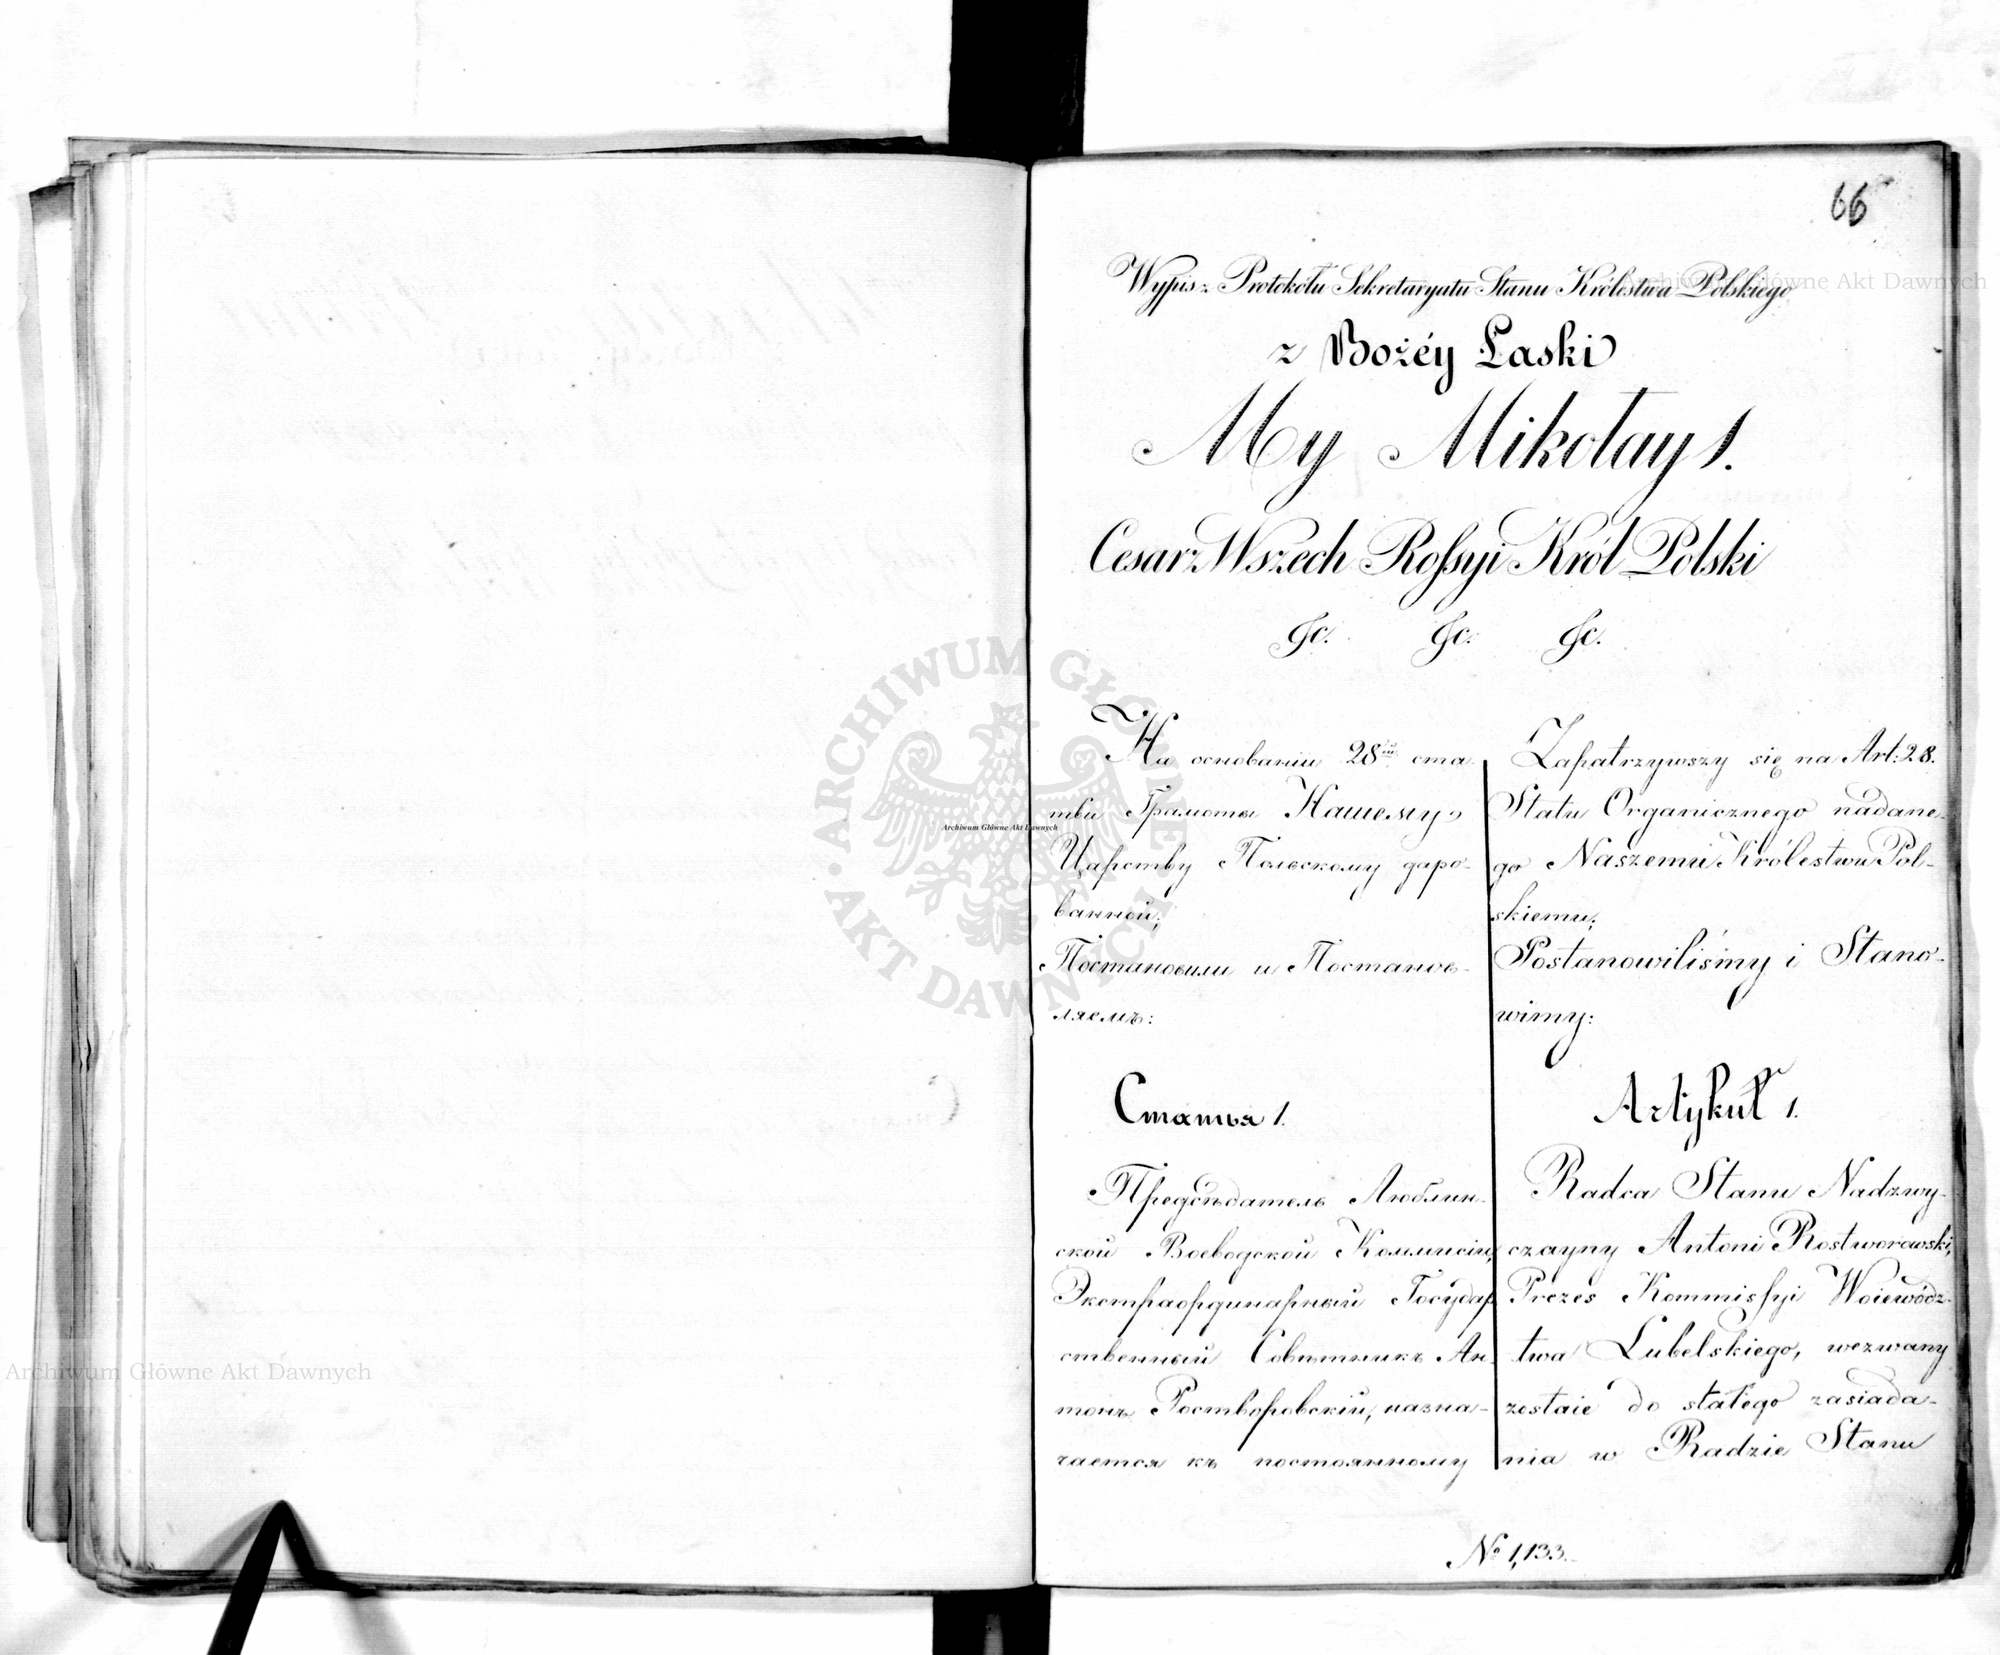 66
Wypis z Protokołu Sekretaryatu Stanu Królestwa Polskiego
z Bożéy Łaski
My Mikołay 1.
Cesarz Wszech Rossyi Król Polski
&c. &c. &c.
На основаніи 28ой ста
тьи Грамоты Нашему
Царству Польскому даро-
ванной;
Постановили и Постанов-
ляемъ:
Статья 1.
Предсѣдатель Люблин-
ской Воеводской Коммисіи,
Экстраординарный Государ
ственный Совѣтникъ Ан-
тонъ Ростворовскій, назна-
чается къ постоянному
Zapatrzywszy się na Art: 28.
Statu Organicznego nadane-
go Naszemu Królestwu Pol-
skiemu;
Postanowiliśmy i Stano-
wimy:
Artykuł 1.
Radca Stanu Nadzwy-
czayny Antoni Rostworowski,
Prezes Kommissyi Woiewódz-
twa Lubelskiego, wezwany
zostaie do stałego zasiada-
nia w Radzie Stanu
№ 1,133.
Archiwum Główne Akt Dawnych
Archiwum Główne Akt Dawnych
Archiwum Główne Akt Dawnych
ARCHIWUM GŁÓWNE AKT DAWNYCH